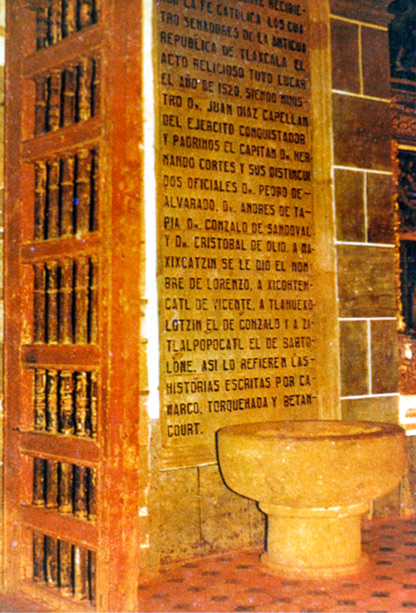 RECIBIE-
RON LA FE CATOLICA, LOS CUA-
TRO SENADORES DE LA ANTIGUA
REPUBLICA DE TLAXCALA. EL
ACTO RELIGIOSO TUVO LUGAR
EL AÑO DE 1520, SIENDO MINIS-
TRO DN. JUAN DIAZ CAPELLAN
DEL EJERCITO CONQUISTADOR
Y PADRINOS EL CAPITAN DN. HER-
NANDO CORTES Y SUS DISTINGUI
DOS OFICIALES DN. PEDRO DE-
ALVARADO, DN. ANDRES DE TA-
PIA, DN. GONZALO DE SANDOVAL
Y DN. CRISTOBAL DE OLID. A MA-
XIXCATZIN SE LE DIO EL NOM
BRE DE LORENZO, A XICOHTEN-
CATL DE VICENTE, A TLAHUEXO-
LOTZIN EL DE GONZALO Y A ZI-
TLALPOPOCATL EL DE BARTO-
LOME. ASI LO REFIEREN LAS-
HISTORIAS ESCRITAS POR CA-
MARGO, TORQUEMADA Y BETAN-
COURT.